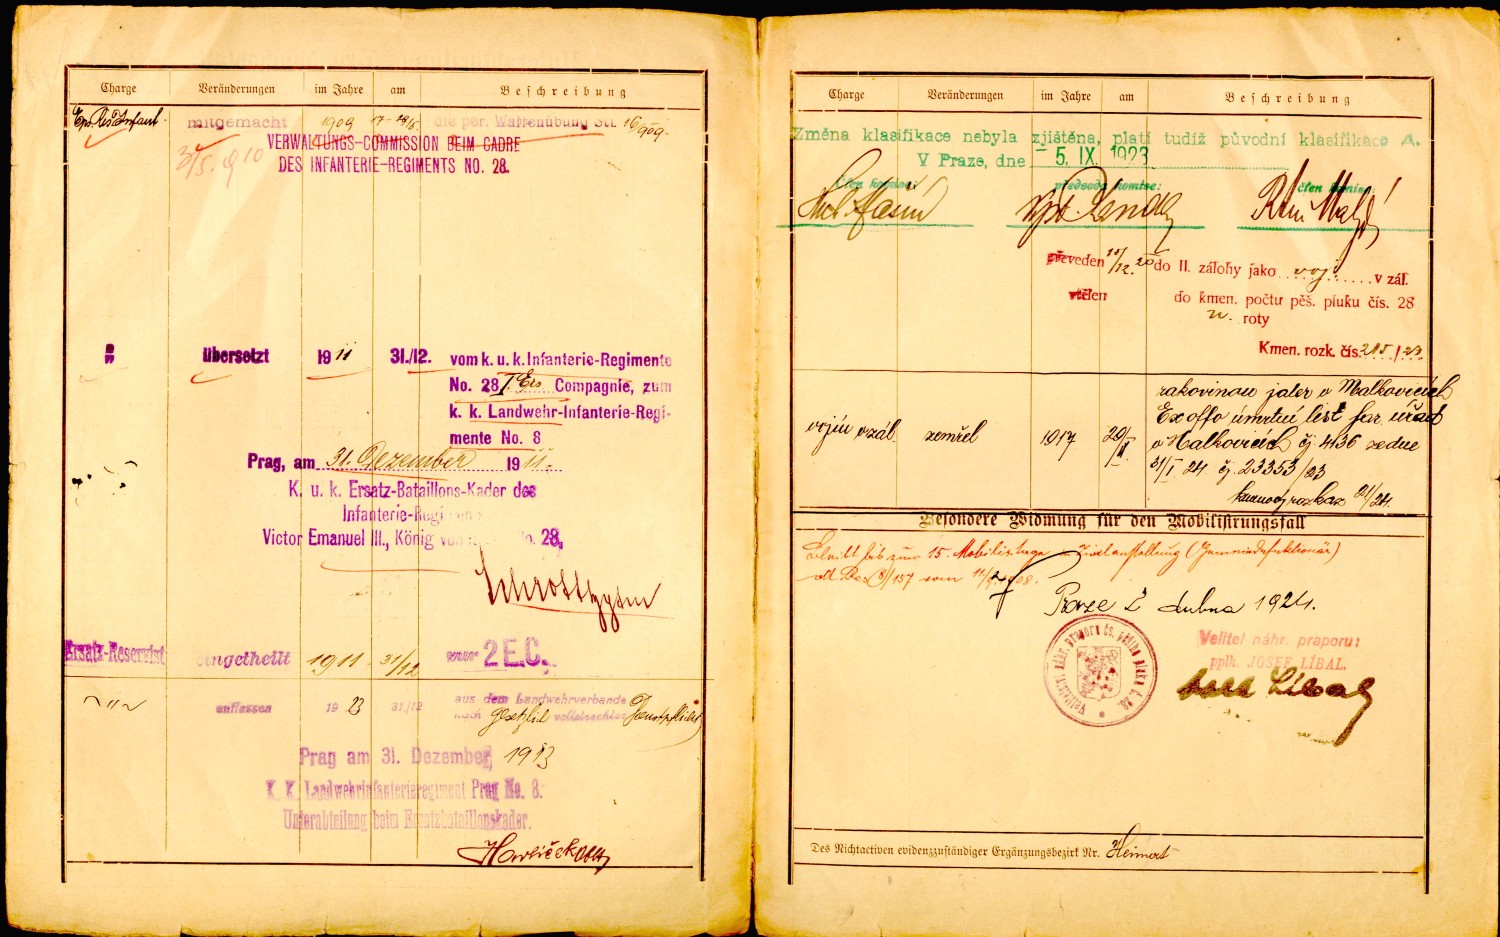 Charge Veränderungen im Jahre am Beschreibung
Ers. Res. Infant. mitgemacht 1909 die per. Waffenübung St. 16/909.
VERWALTUNGS-COMMISSION BEIM CADRE
DES INFANTERIE-REGIMENTS NO. 28.
" übersetzt 1911 31./12. vom k. u. k. Infanterie-Regimente
No. 28 Compagnie, zum
k. k. Landwehr-Infanterie-Regi-
mente No. 8
Prag, am 31. Dezember 1911.
K. u. k. Ersatz-Bataillons-Kader des
Infanterie-Regi
Victor Emanuel III., König von No. 28,
Ersatz-Reservist eingetheilt 1911 31/12 2 E.C.
" entlassen 31/12 aus dem Landwehrverbande
nach gesetzlich vollstreckter
Prag am 31. Dezember 1913
K. K. Landwehrinfanterieregiment Prag No. 8.
Unterabteilung beim Ersatzbataillonskader.
Charge Veränderungen im Jahre am Beschreibung
Změna klasifikace nebyla zjištěna, platí tudíž původní klasifikace A.
V Praze, dne 5. IX. 1923
člen komise: předseda komise: člen komise:
převeden do II. zálohy jako voj. v zál.
vtělen do kmen. počtu pěš. pluku čís. 28
n. roty
Kmen. rozk. čís. 215/23
vojín v zál. zemřel 1917 rakovinou jater v Malkovicích
Ex offo úmrtní list far. úřad
v Malkovicích čj. 436 ze dne
31/I 24 čj. 23353/23
kmenový rozkaz 21/24.
Besondere Widmung für den Mobilisirungsfall
Bleibt bis zum 15. Mobilis. tage in Zivilanstellung (Gemeindefunktionär)
Praze 2 dubna 1924.
Velitel náhr. praporu:
pplk. JOSEF LÍBAL.
Des Nichtactiven evidenzzuständiger Ergänzungsbezirk Nr. Heimat